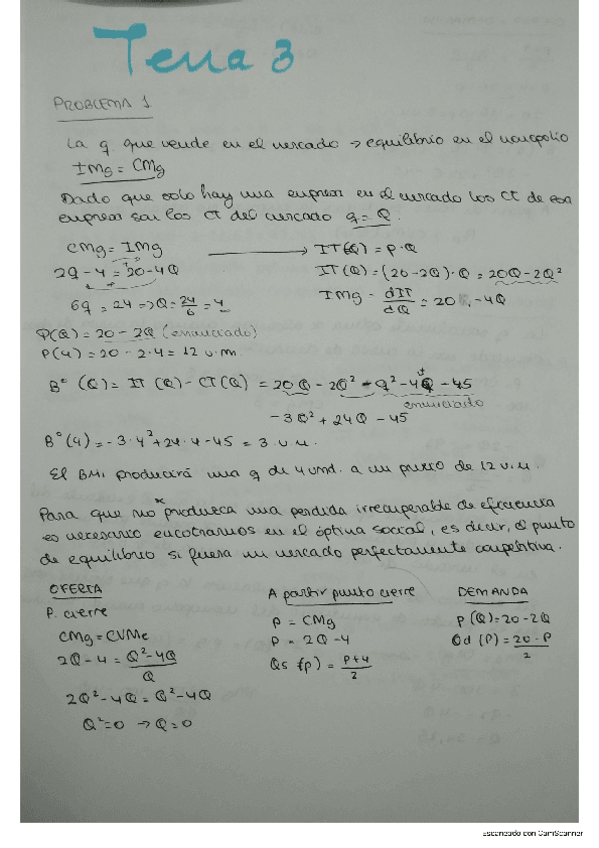 Tema 3
PROBLEMA 1
La q que vende en el mercado → equilibrio en el monopolio
IMg = CMg
Dado que solo hay una empresa en el mercado los CT de esa
empresa son los CT del mercado q = Q.
CMg = IMg → IT(Q) = P·Q
2q - 4 = 20 - 4Q IT(Q) = (20 - 2Q)·Q = 20Q - 2Q²
6q = 24 => Q = 24/6 = 4 IMg = dIT/dQ = 20 - 4Q
P(Q) = 20 - 2Q (enunciado)
P(4) = 20 - 2·4 = 12 u.m
Bº(Q) = IT(Q) - CT(Q) = 20Q - 2Q² - q² - 4q - 45
enunciado
-3Q² + 24Q - 45
Bº(4) = -3·4² + 24·4 - 45 = 3 u.m.
El BM producirá una q de 4 und. a un precio de 12 u.m.
Para que no produzca una perdida irrecuperable de eficiencia
es necesario encontrarnos en el óptimo social, es decir, el punto
de equilibrio si fuera un mercado perfectamente competitivo.
OFERTA A partir punto cierre DEMANDA
P. cierre P = CMg P(Q) = 20 - 2Q
CMg = CVMe P = 2Q - 4 Qd(P) = 20 - P / 2
2Q - 4 = Q² - 4Q / Q Qs(p) = P + 4 / 2
2Q² - 4Q = Q² - 4Q
Q² = 0 → Q = 0
Escaneado con CamScanner